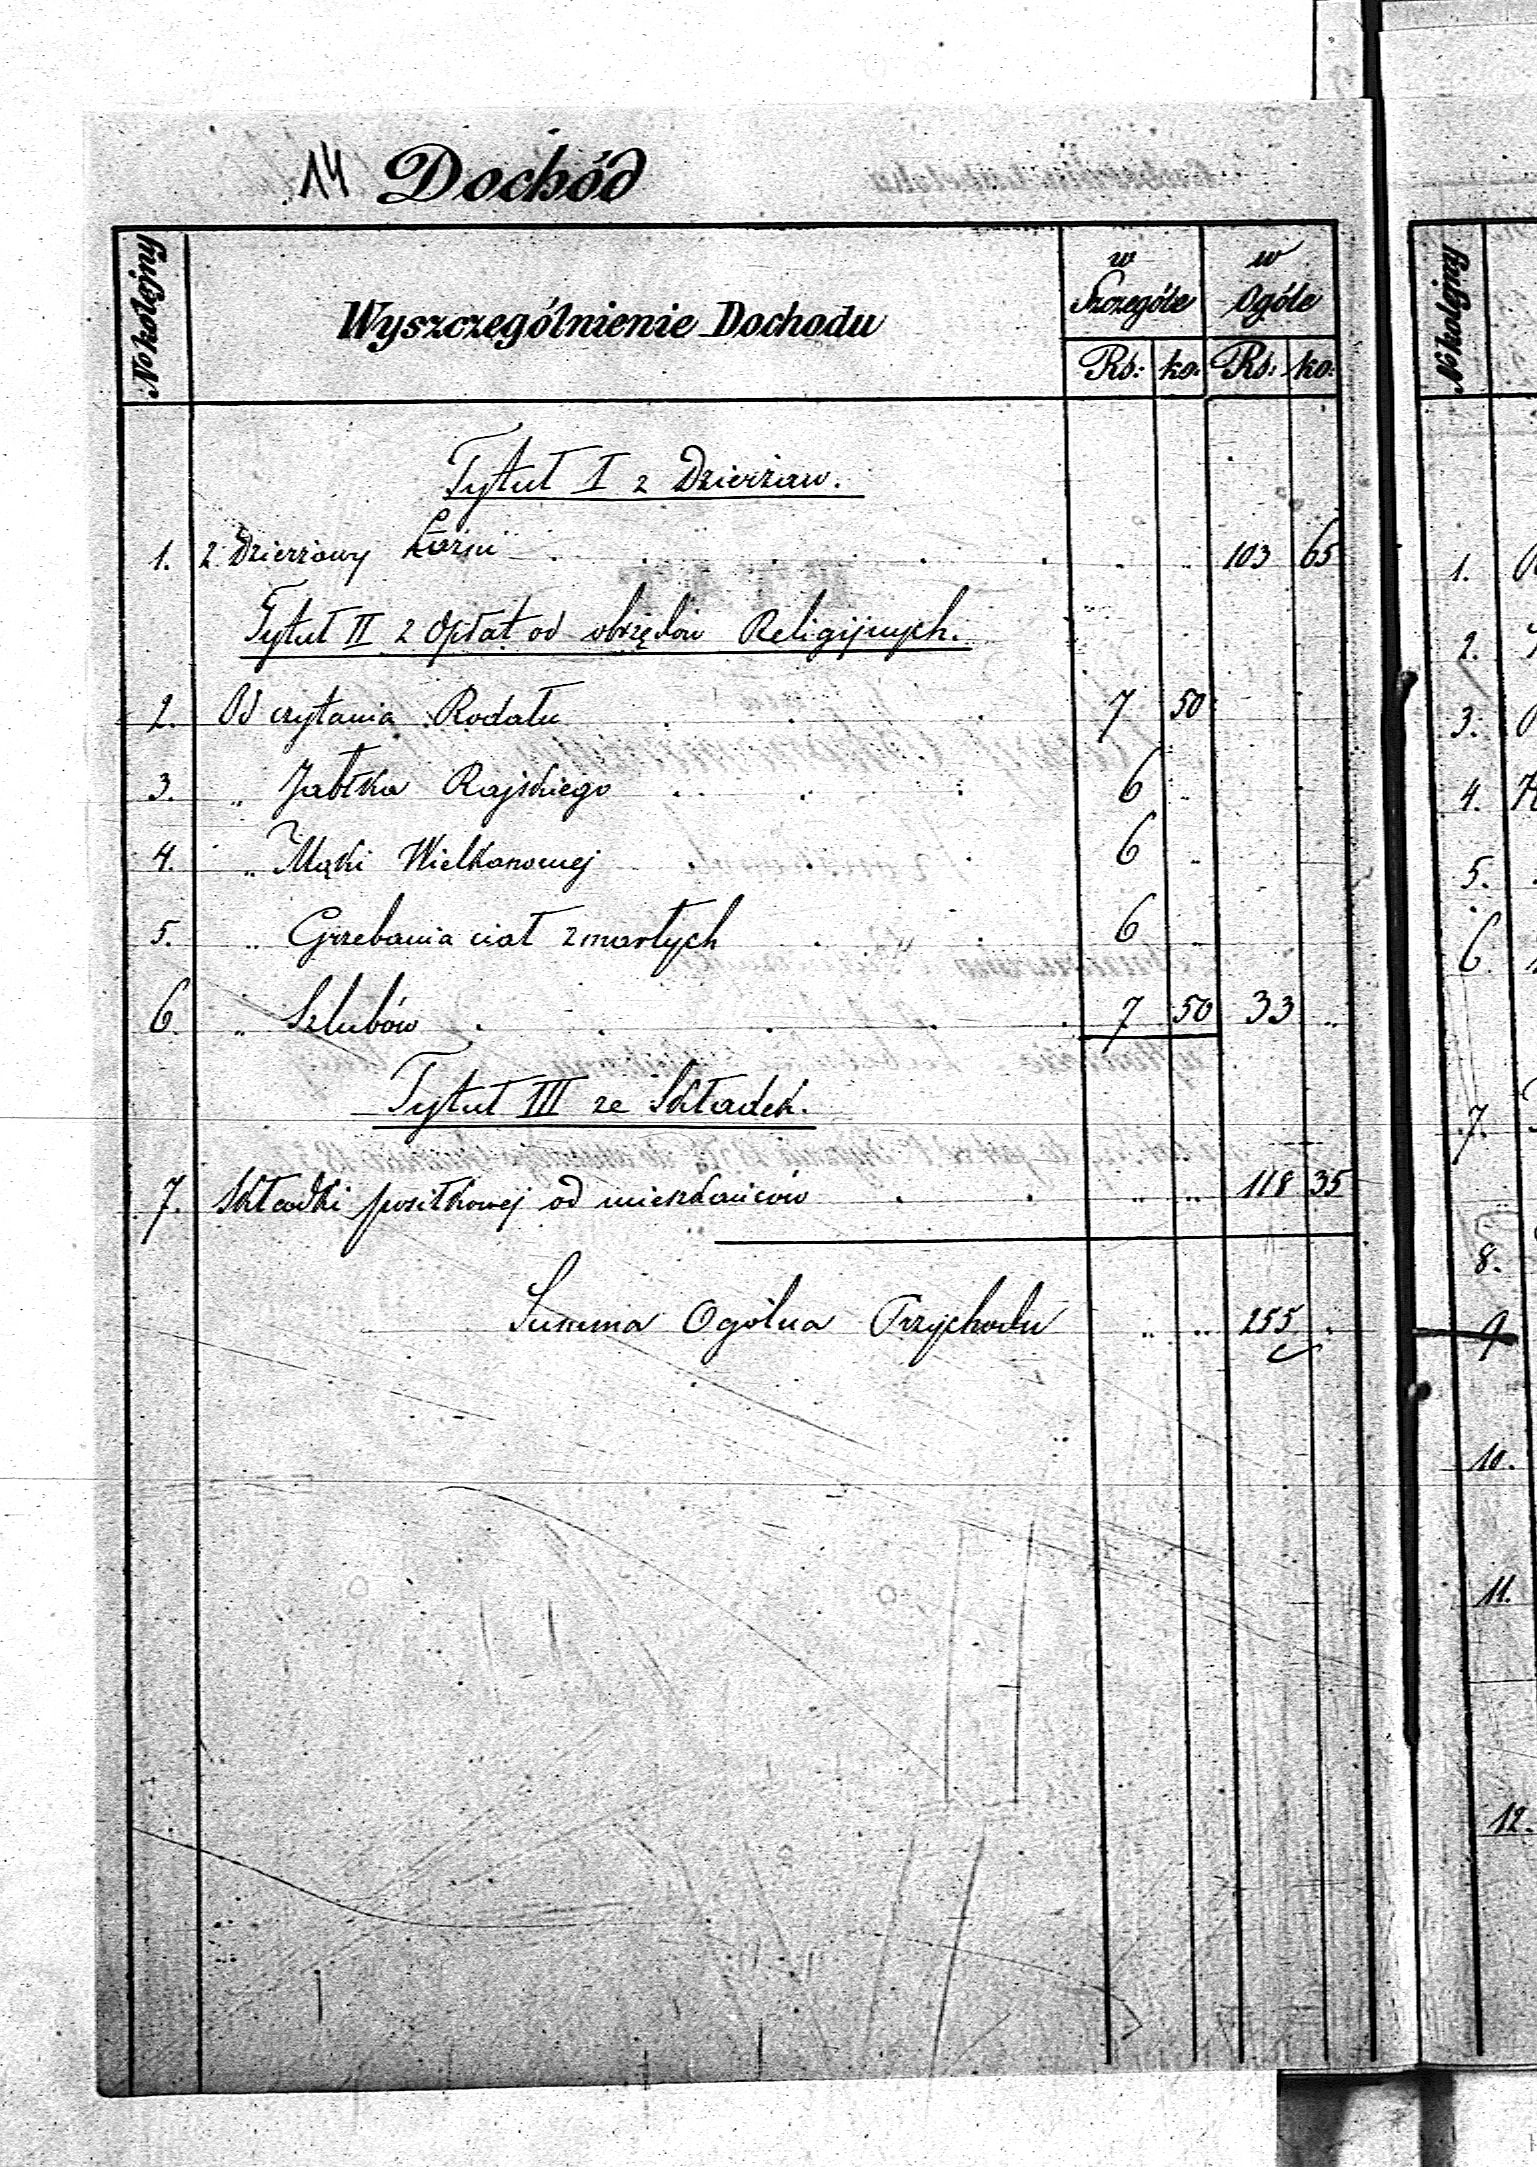 14 Dochód
No kolejny
Wyszczególnienie Dochodu
w Szczególe
w Ogóle
Rs: ko: Rs: ko:
Tytuł I z Dzierżaw.
1. z Dzierżawy Łaźni . . . . . . . „ 103 65
Tytuł II z Opłat od obrzędów Religijnych.
2. Od czytania Rodału . . . 7 50
3. „ Jabłka Rajskiego . . . . 6 „
4. „ Mąki Wielkanocnej . . . 6 „
5. „ Grzebania ciał zmarłych . „ . 6 „
6. „ Szlubów . . . . . . 7 50 33 „
Tytuł III ze Składek.
7. Składki posiłkowej od mieszkańców . . „ „ 118 35
Summa Ogólna Przychodu „ „ 255 „
No kolejny
1.
2.
3.
4.
5.
6.
7.
8.
9
10.
11.
12.